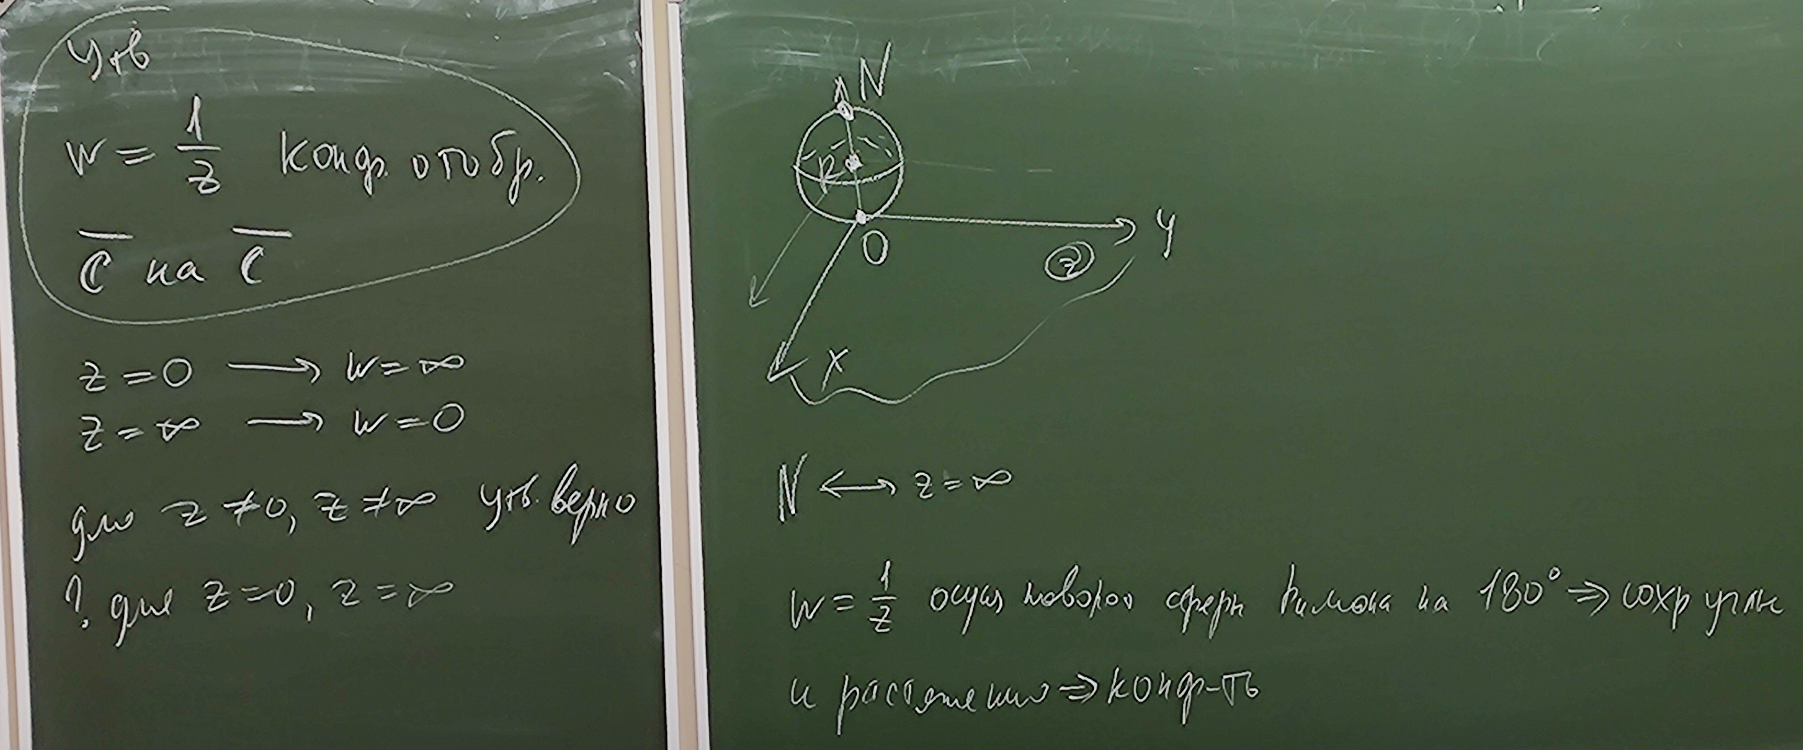 Утв
w = 1/z конф. отобр.
C̅ на C̅
z = 0 → w = ∞
z = ∞ → w = 0
для z ≠ 0, z ≠ ∞ утв. верно
? для z = 0, z = ∞
N
R
O
y
z
x
N ↔ z = ∞
w = 1/z осущ поворот сферы Римана на 180° ⇒ сохр углы
и растяжения ⇒ конф-ть